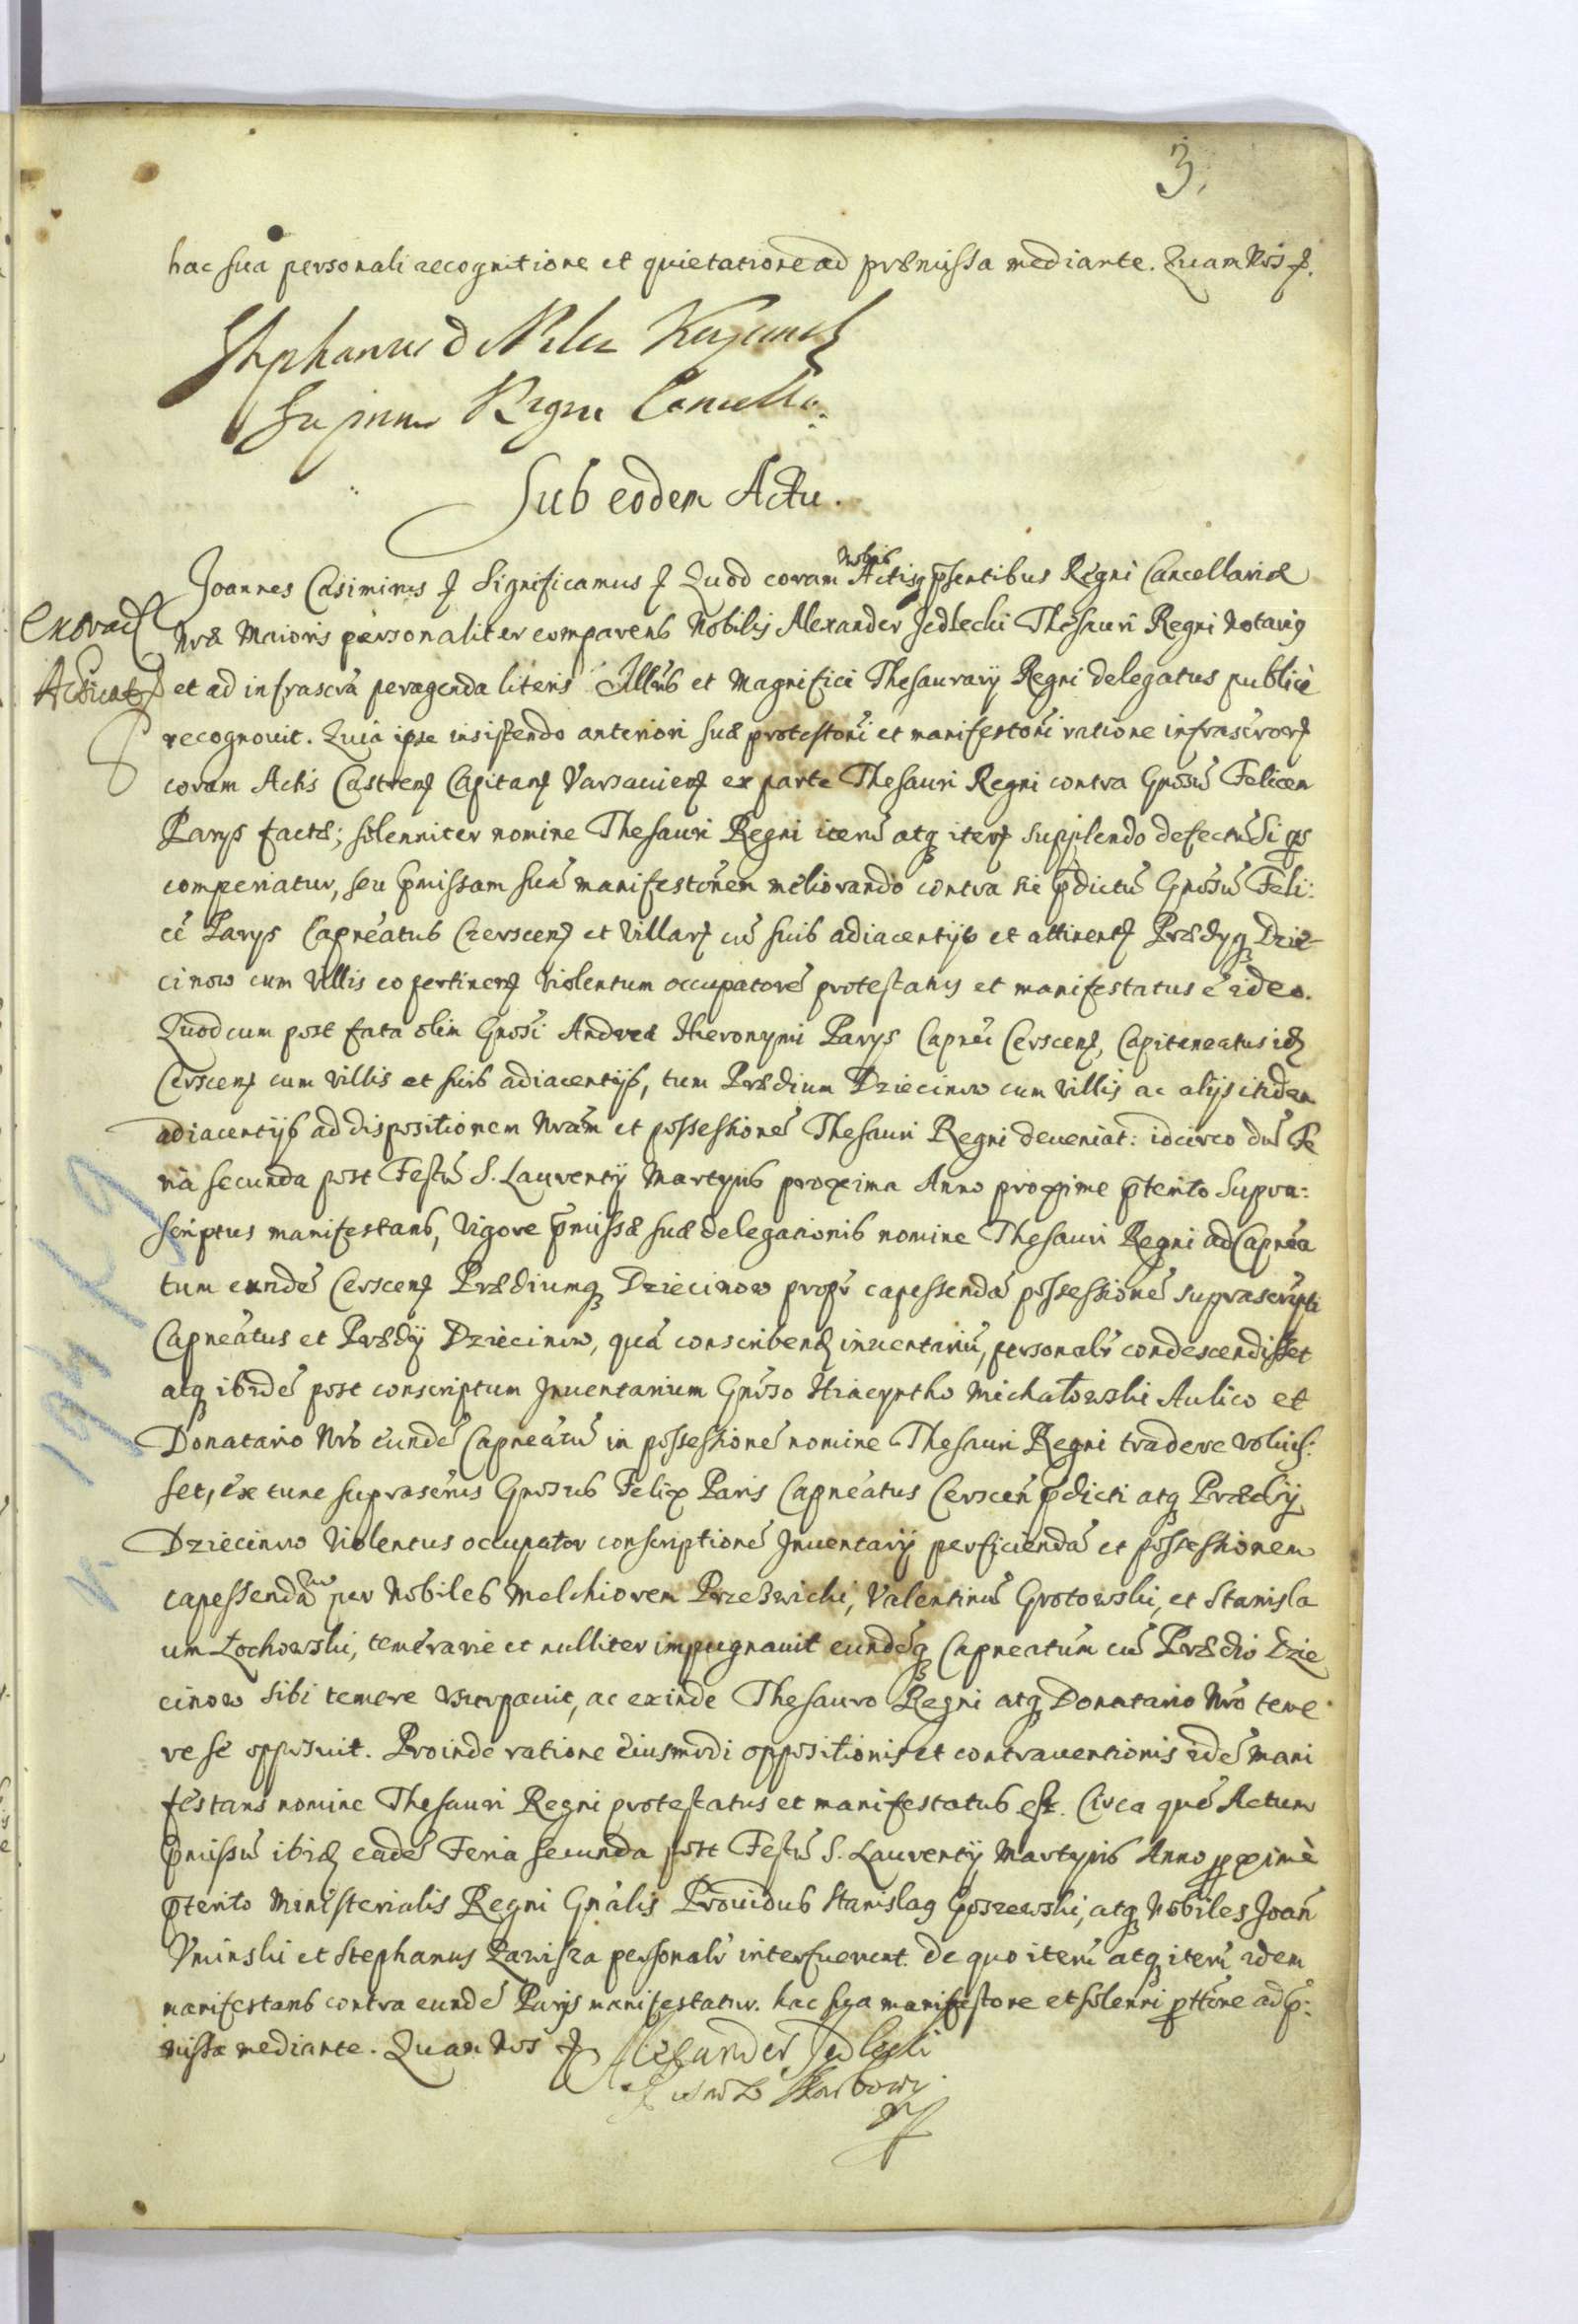 3.
hac sua personali recognitione et quietatione ad præmissa mediante. Quam Nos
Stephanus
Supremus Regni Cancell:
Sub eodem Actu.
Joannes Casimirus Significamus Quod coram Nobis Actisq pñtibus Regni Cancellariæ
Nræ Maioris personaliter comparens Nobilis Alexander Jedlecki Thesauri Regni Notarius
et ad infrascra peragenda literis Illris et Magnifici Thesaurarij Regni delegatus publicè
recognouit. Quia ipse insistendo anteriori suæ protestõni et manifestõni ratione infrascror
coram Actis Castren Capitan Varsauien ex parte Thesauri Regni contra Gnosũ Felicem
Parys factæ; solenniter nomine Thesauri Regni iterũ atq iter supplendo defectũ Si qs
comperiatur, seu p̃missam suã manifestõnem meliorando contra sic p̃dictũ Gnosũ Feli:
cẽ Parys Capneatus Czerscen et Villar cũ suis adiacentijs et attinent Prædijq Dzie-
cinow cum Villis eo pertinen Violentum occupatorẽ protestatus et manifestatus ẽ ideo.
Quod cum post fata olim Gnosi Andreæ Hieronymi Parys Capnei Cerscen, Capitaneatus id
Cerscen cum Villis et suis adiacentijs, tum Prædium Dziecinow cum Villis ac alijs itidem
adiacentijs ad dispositionem Nram et possessionẽ Thesauri Regni deueniat: idcirco dũ Fe
ria secunda post Festũ S. Laurentij Martyris proxima Anno proxime p̃terito Supra:
scriptus manifestans, Vigore p̃missæ suæ delegationis nomine Thesauri Regni ad Capnea
tum eundẽ Cerscen Prædiumq Dziecinow proptr capessendã possessionẽ suprascripti
Capneatus et Prædij Dziecinow, quã conscribend inuentariũ, personalr condescendisset
atq ibidẽ post conscriptum Inuentarium Gnoso Hiacyntho Michałowski Aulico et
Donatario Nro eundẽ Capneatũ in possessionẽ nomine Thesauri Regni tradere voluis:
set, ex tunc suprascrus Gnosus Felix Paris Capneatus Cerscen p̃dicti atq Prædij
Dziecinow Violentus occupator conscriptionẽ Inuentarij perficiendã et possessionem
capessendã per Nobiles Melchiorem Przezwicki, Valentinũ Grotowski, et Stanisla
um Zochowski, temerarie et nulliter impugnauit eundẽq Capneatum cũ Prædio Dzie
cinow sibi temere Vsurpauit, ac exinde Thesauro Regni atq Donatario Nro teme
re se opposuit. Proinde ratione eiusmodi oppositionis et contrauentionis idẽ mani
festans nomine Thesauri Regni protestatus et manifestatus est. Circa quẽ Actum
p̃missũ ibid eadẽ Feria secunda post Festũ S. Laurentij Martyris Anno proximè
p̃terito Ministerialis Regni Gnalis Prouidus Stanislaus Goszewski, atq Nobiles Joan
Vminski et Stephanus Zawisza personalr interfuerunt. De quo iterũ atq iterũ idem
manifestans contra eundẽ Parijs manifestatur. hac sua manifestõne et solenni pttõne ad p̃:
missa mediante. Quam Nos Alexander Jedlecki
Pisarz Skarbowy